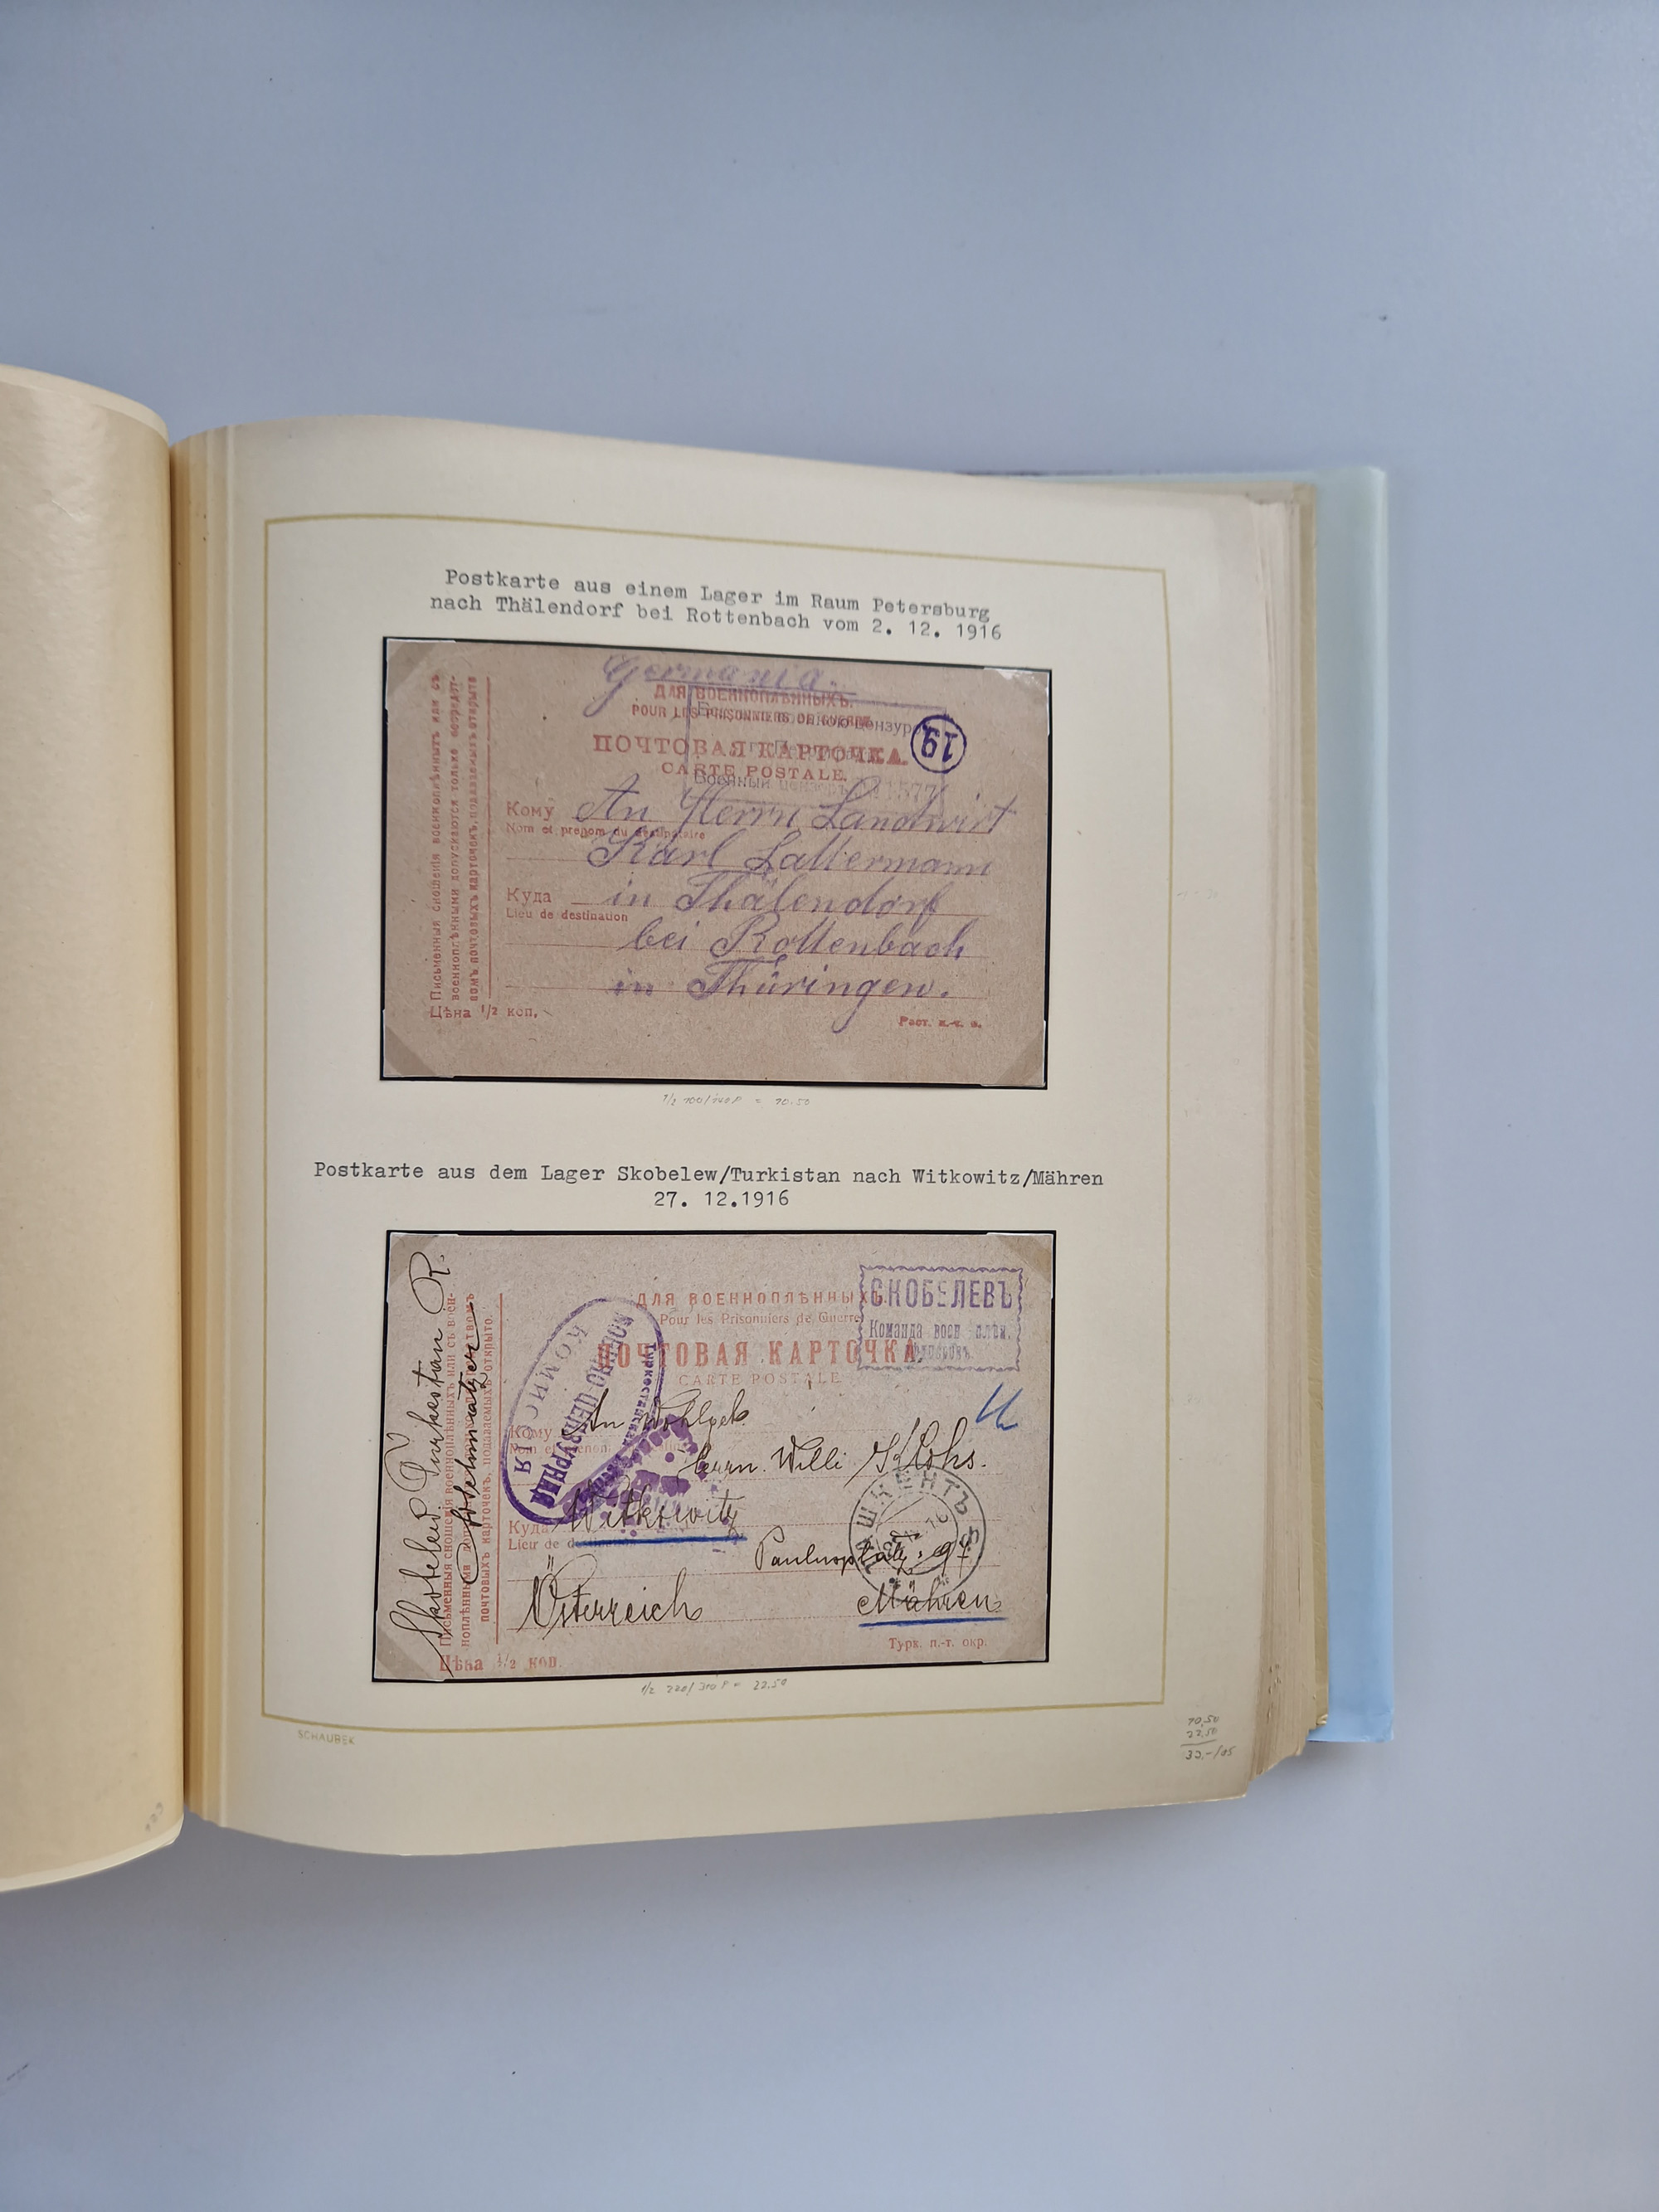 Postkarte aus einem Lager im Raum Petersburg
nach Thälendorf bei Rottenbach vom 2. 12. 1916
Germania.
ДЛЯ ВОЕННОПЛѢННЫХЪ.
POUR LES PRISONNIERS DE GUERRE
ПОЧТОВАЯ КАРТОЧКА.
CARTE POSTALE.
19
Военный цензоръ № 1577
Кому An Herrn Landwirt
Nom et prenom du destinataire
Karl Lattermann
Куда in Thälendorf
Lieu de destination
bei Rottenbach
in Thüringen.
Письменныя сношенія военноплѣнныхъ или съ
военноплѣнными допускаются только посредст-
вомъ почтовыхъ карточекъ, подаваемыхъ открыто
Цѣна 1/2 коп.
Рост. п.-т. о.
1/2 = 10.50
Postkarte aus dem Lager Skobelew/Turkistan nach Witkowitz/Mähren
27. 12.1916
ДЛЯ ВОЕННОПЛѢННЫХЪ.
Pour les Prisonniers de Guerre
ПОЧТОВАЯ КАРТОЧКА.
CARTE POSTALE
СКОБЕЛЕВЪ
Команда воен. плѣн.
ВОЕННО-ЦЕНЗУРНАЯ
КОМИССІЯ
Кому An Wohlgeb.
Herrn. Willi Klohs.
Куда Witkowitz
Lieu de destination
ТАШКЕНТЪ
Österreich
Mähren
Skobelew Turkestan R.
Письменныя сношенія военноплѣнныхъ или съ воен-
ноплѣнными
почтовыхъ карточекъ, подаваемыхъ открыто.
Цѣна 1/2 коп.
Турк. п.-т. окр.
1/2 220/310 P = 22.50
SCHAUBEK
10,50
22,50
33.-/05